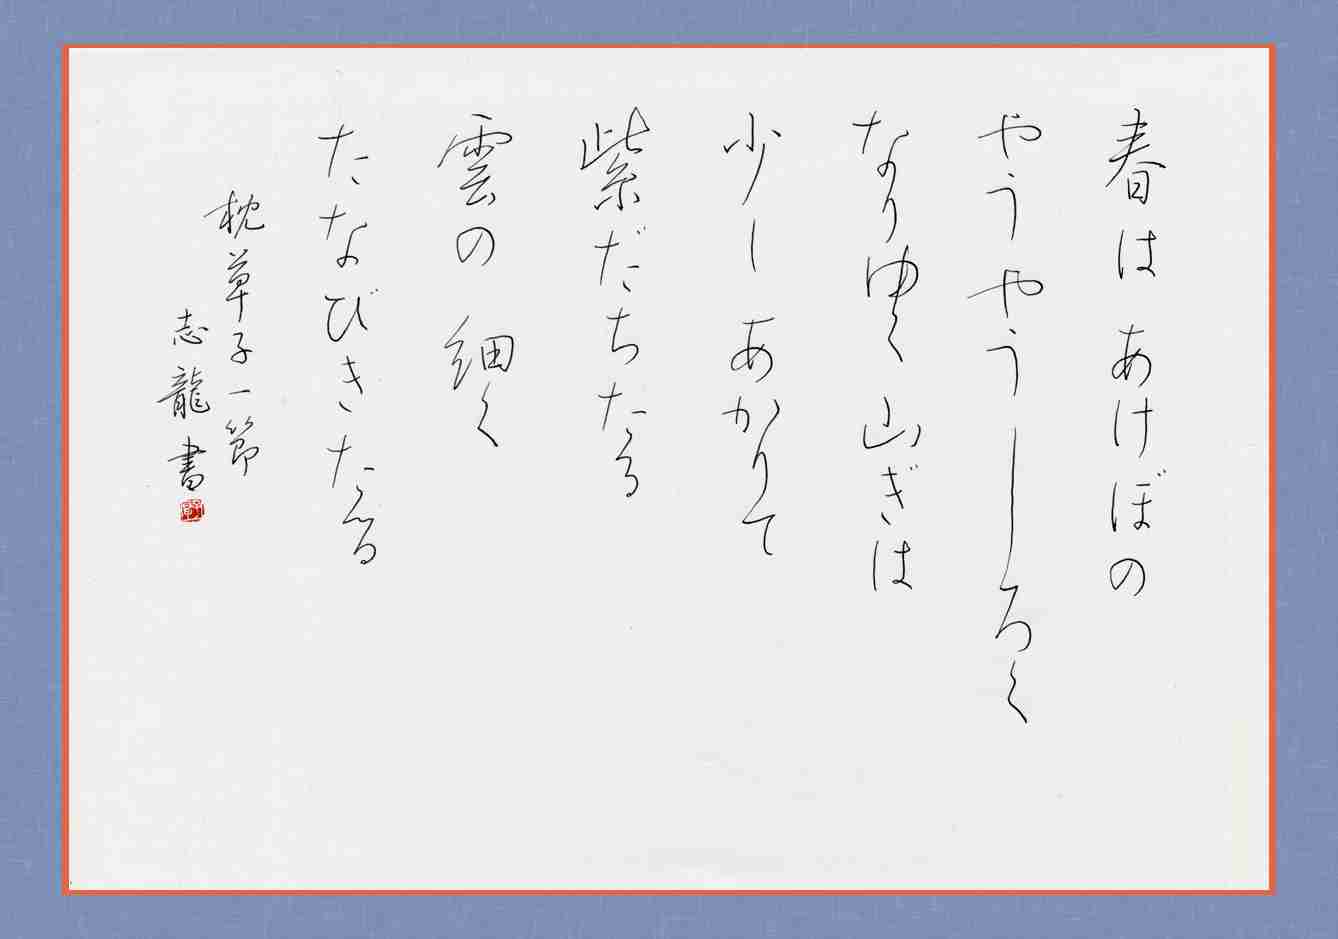 春はあけぼの
やうやうしろく
なりゆく山ぎは
少しあかりて
紫だちたる
雲の細く
たなびきたる
枕草子一節
志龍書